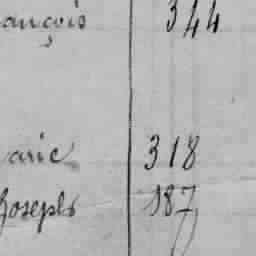 ançois 344
arie 318
Joseph 187